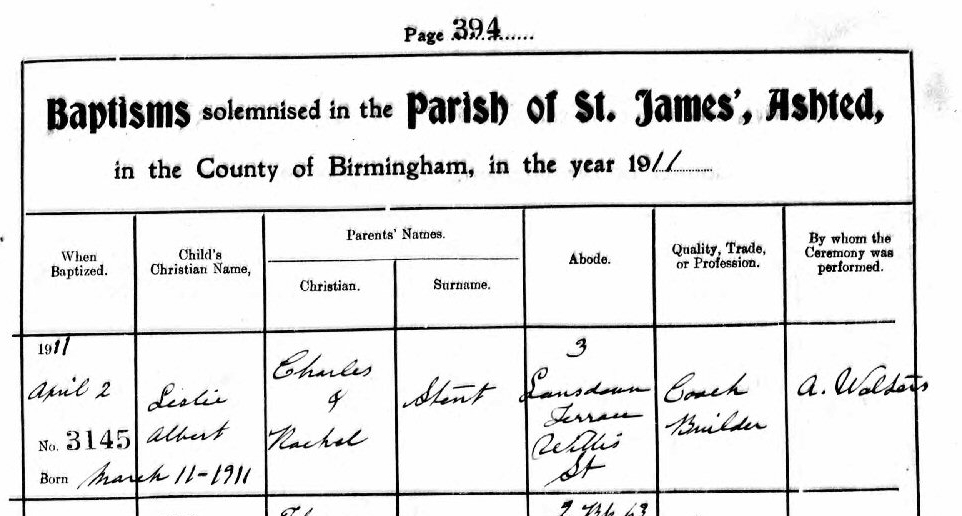 Page 394
Baptisms solemnised in the Parish of St. James', Ashted,
in the County of Birmingham, in the year 1911
When Baptized.
Child's Christian Name,
Parents' Names.
Christian.
Surname.
Abode.
Quality, Trade, or Profession.
By whom the Ceremony was performed.
1911
April 2
No. 3145
Born March 11-1911
Leslie
Albert
Charles
&
Rachel
Stent
3
Lansdown
Terrace
Willis
St
Coach
Builder
A. Walters